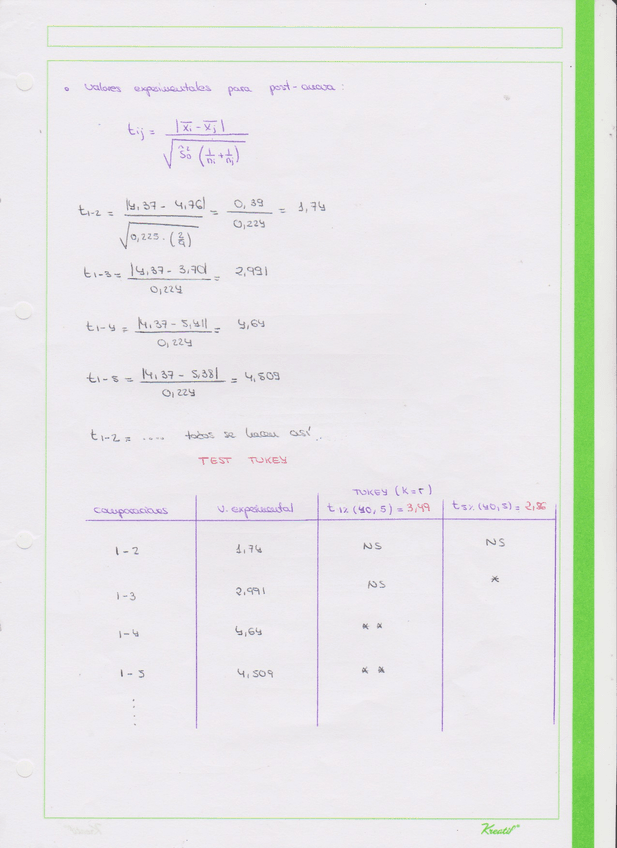 • Valores experimentales para post-anova:
tij = |x̄i - x̄j| / √(Ŝ0² (1/ni + 1/nj))
t1-2 = |4,37 - 4,76| / √(0,225 · (2/9)) = 0,39 / 0,224 = 1,74
t1-3 = |4,37 - 3,70| / 0,224 = 2,991
t1-4 = |4,37 - 5,41| / 0,224 = 4,64
t1-5 = |4,37 - 5,38| / 0,224 = 4,509
t1-2 = .... todos se hacen así...
TEST TUKEY
TUKEY (K=5)
Comparaciones V. experimental t 1% (40, 5) = 3,49 t 5% (40, 5) = 2,86
1-2 1,74 NS NS
1-3 2,991 NS *
1-4 4,64 * *
1-5 4,509 * *
Kreatif